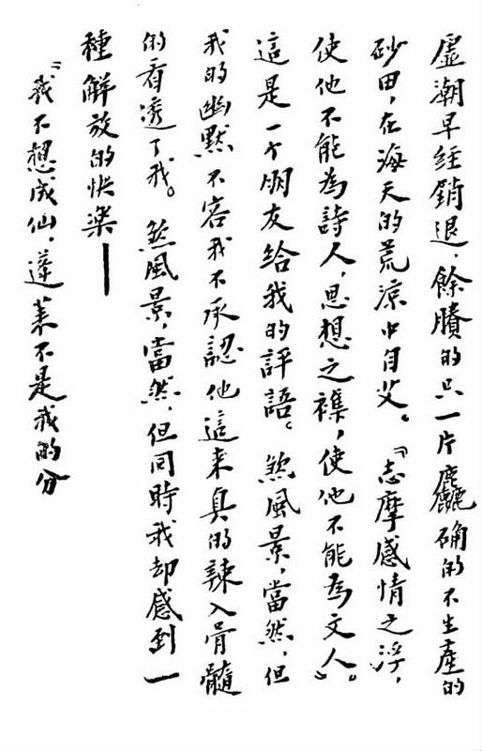 虛潮早經銷退，餘賸的只一片麤确的不生產的
砂田，在海天的荒涼中自艾。『志摩感情之浮，
使他不能為詩人，思想之襍，使他不能為文人』。
這是一个朋友給我的評語。煞風景，當然，但
我的幽默不容我不承認他這来真的辣入骨髓
的看透了我。煞風景，當然，但同時我却感到一
種解放的快樂——
『我不想成仙，蓬萊不是我的分